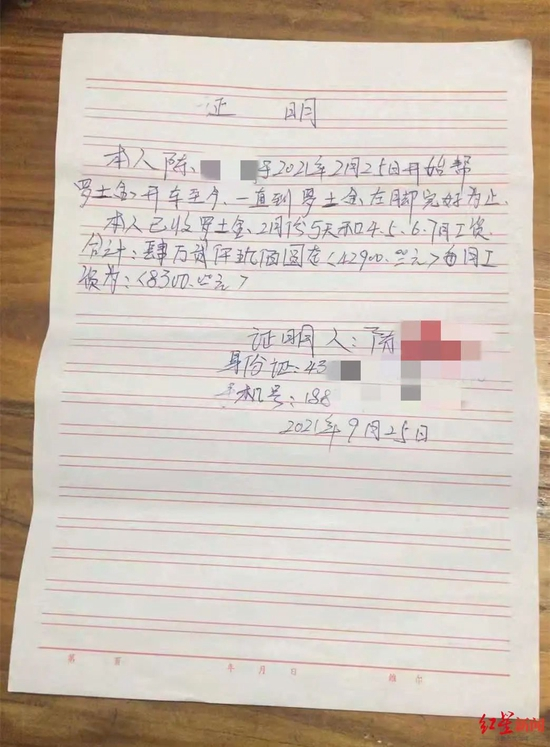 证 明
本人陈 于2021年2月25日开始帮
罗土金开车至今,一直到罗土金左脚完好为止.
本人已收罗土金2月份5天和4.5.6.7月工资
合计:肆万贰仟玖佰圆整<42900.00元>每月工
资为:<8300.00元>
证明人:陈
身份证:43
手机号:188
2021年9月25日
第 页 年 月 日 维尔
红星新闻